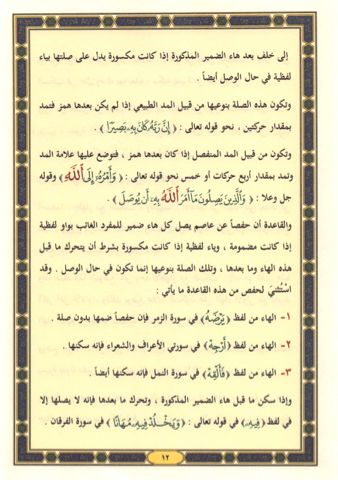 إلى خلف بعد هاء الضمير المذكورة إذا كانت مكسورة يدل على صلتها بياء
لفظية في حال الوصل أيضاً .
وتكون هذه الصلة بنوعيها من قبيل المد الطبيعي إذا لم يكن بعدها همز فتمد
بمقدار حركتين ، نحو قوله تعالى : ﴿ إِنَّ رَبَّهُۥ كَانَ بِهِۦ بَصِيرًا ﴾ .
وتكون من قبيل المد المنفصل إذا كان بعدها همز ، فتوضع عليها علامة المد
وتمد بمقدار أربع حركات أو خمس نحو قوله تعالى : ﴿ وَأَمْرُهُۥٓ إِلَى ٱللَّهِ ﴾ وقوله
جل وعلا : ﴿ وَٱلَّذِينَ يَصِلُونَ مَآ أَمَرَ ٱللَّهُ بِهِۦٓ أَن يُوصَلَ ﴾ .
والقاعدة أن حفصاً عن عاصم يصل كل هاء ضمير للمفرد الغائب بواو لفظية
إذا كانت مضمومة ، وياء لفظية إذا كانت مكسورة بشرط أن يتحرك ما قبل
هذه الهاء وما بعدها ، وتلك الصلة بنوعيها إنما تكون في حال الوصل . وقد
اسْتُثنيَ لحفص من هذه القاعدة ما يأتي :
١- الهاء من لفظ ﴿ يَرْضَهُ ﴾ في سورة الزمر فإن حفصاً ضمها بدون صلة .
٢- الهاء من لفظ ﴿ أَرْجِهْ ﴾ في سورتي الأعراف والشعراء فإنه سكنها .
٣- الهاء من لفظ ﴿ فَأَلْقِهْ ﴾ في سورة النمل فإنه سكنها أيضاً .
وإذا سكن ما قبل هاء الضمير المذكورة ، وتحرك ما بعدها فإنه لا يصلها إلا
في لفظ ﴿ فِيهِۦ ﴾ في قوله تعالى : ﴿ وَيَخْلُدْ فِيهِۦ مُهَانًا ﴾ في سورة الفرقان .
١٢